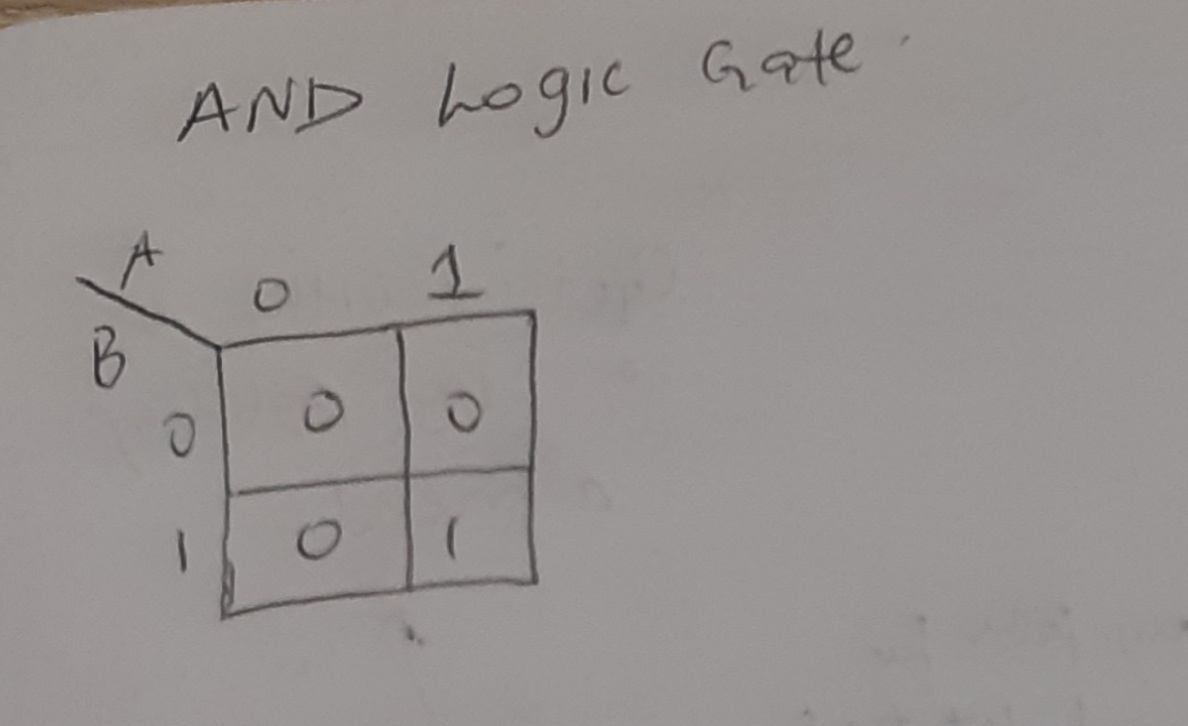 AND Logic Gate
A
0 1
B
0 0 0
1 0 1